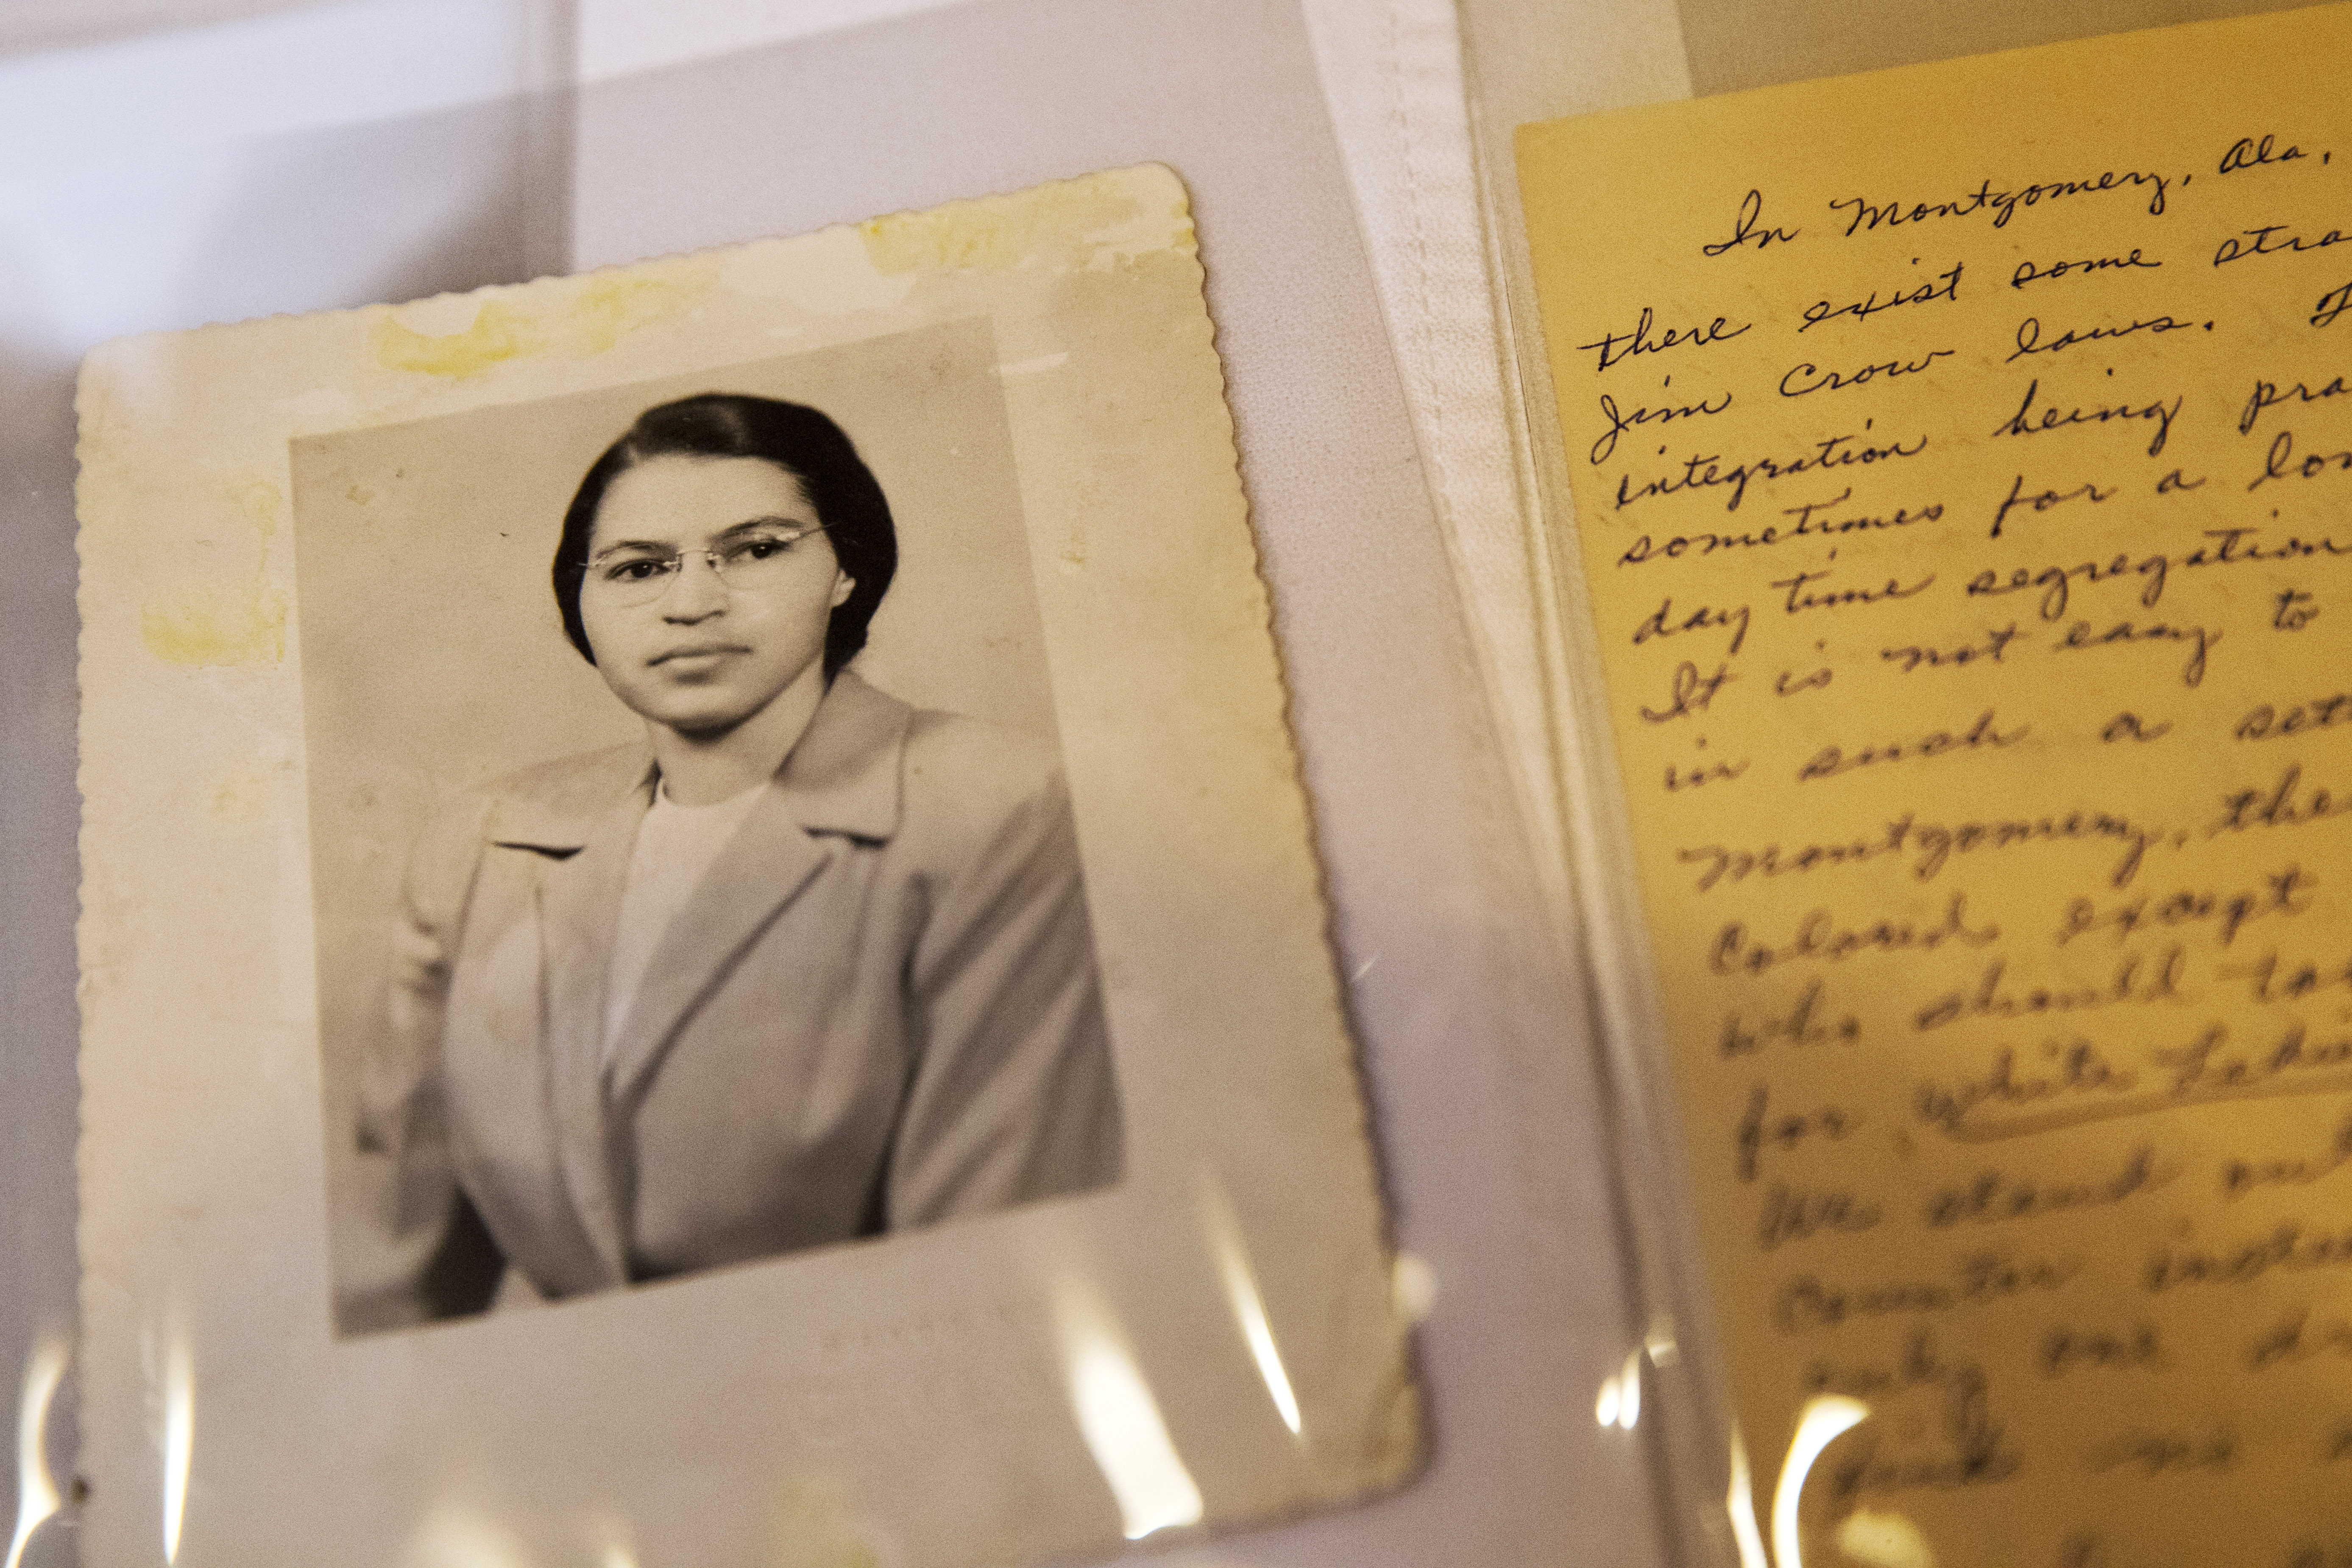 In Montgomery, Ala,
there exist some stra
Jim Crow laws.
integration being pra
sometimes for a lon
day time segregation
It is not easy to
in such a set
Montgomery, the
Colored except
who should ta
for white
We stand out
counter inste
only one